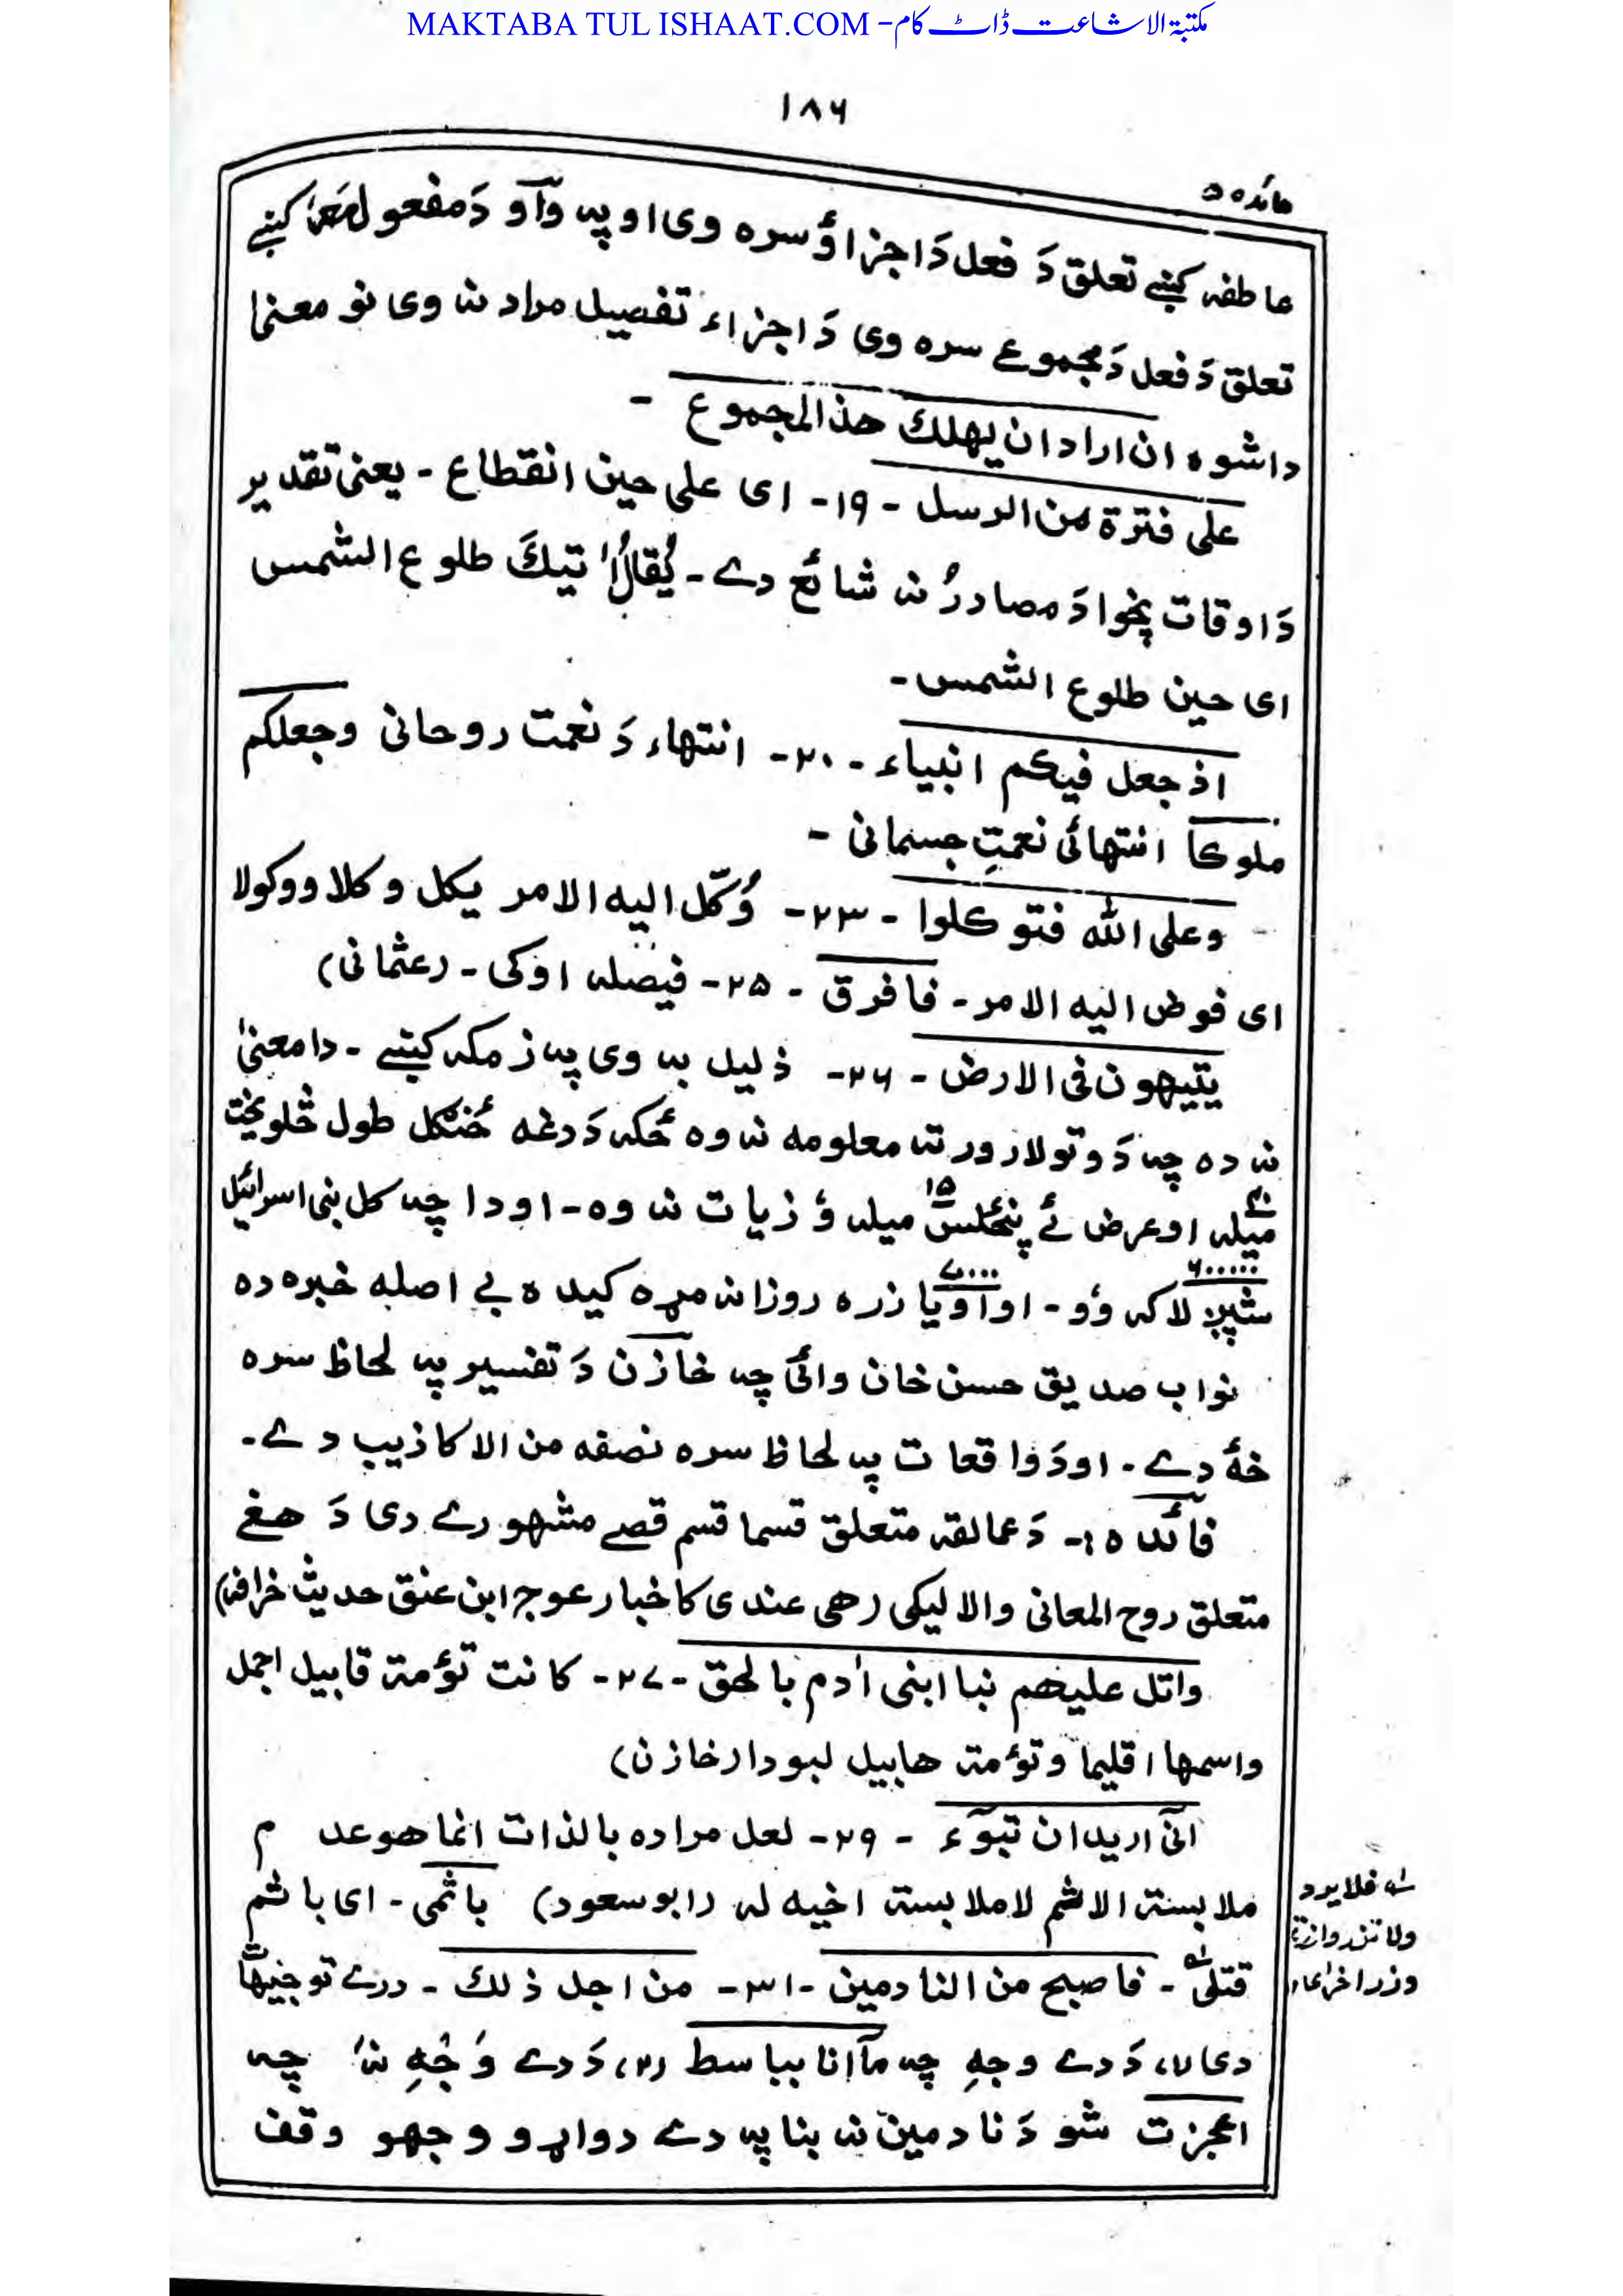 MAKTABA TUL ISHAAT.COM -مکتبۃ الاشاعت ڈاٹ کام
۱۸۶
مائده ۵
عاطفہ کښے تعلق دَ فعل دَ اجزاؤ سره وی او پہ وآو دَ مفعول معہٗ کښے
تعلق دَ فعل دَ مجموعے سره وی دَ اجزاء تفصیل مراد نہ وی نو معنیٰ
داشوه ان اراد ان یهلك هذ المجموع -
علی فترة من الرسل - ۱۹- ای علی حین انقطاع - یعنی تقدیر
دَ اوقات پخوا دَ مصادرُ نہ شائع دے - یُقالُ اٰتیكَ طلوع الشمس
ای حین طلوع الشمس -
اذ جعل فیکم انبیاء - ۲۰- انتهاء دَ نعمت روحانی وجعلکم
ملوکاً انتهائی نعمتِ جسمانی -
وعلی الله فتوکلوا - ۲۳- وُکّل الیه الامر یکل وکلا ووکولا
ای فوض الیه الامر - فافرق - ۲۵- فیصلہ اوکی - (عثمانی)
یتیهون فی الارض - ۲۶- ذلیل بہ وی پہ زمکہ کښے - دا معنیٰ
نہ ده چہ دَ وتولار ورتہ معلومه نہ وه ځکہ دَ دغه ځنګل طول څلویښت
میلہ او عرض ئے پنځلس ۱۵ میلہ ؤ زیات نہ وه - او دا چہ کل بنی اسرائیل
شپږ لاکہ ۶۰۰۰۰۰ وُو - او اَویا زره ۷۰۰۰ روزانہ مړه کیده بے اصله خبره ده
نواب صدیق حسن خان وائی چہ خازن دَ تفسیر پہ لحاظ سره
خهٔ دے - او دَ واقعات پہ لحاظ سره نصفه من الاکاذیب دے -
فائده :- دَ عمالقہ متعلق قسما قسم قصے مشهورے دی دَ هغے
متعلق روح المعانی والا لیکی (هی عندی کاخبار عوج ابن عنق حدیث خرافہ)
واتل علیهم نبا ابنی اٰدم بالحق - ۲۷- کانت تؤمة قابیل اجمل
واسمها اقلیما وتؤمة هابیل لبودا (خازن)
انی ارید ان تبوٓء - ۲۹- لعل مراده بالذات انما هو عدم
ملابسة الاثم لا ملابسة اخیه له (ابوسعود) باثمی - ای باثم
قتلی - فاصبح من النادمین - ۳۱- من اجل ذلك - درے توجیهات
دی ۱، دَ دے وجهِ چہ مآانا بباسط (۲، دَ دے وَجْهِ نہ چہ
اعجزت شو دَ نادمین نہ بنا پہ دے دواړو وجهو وقف
فلا یرد
ولا تزر وازرة
وزر اخریٰ